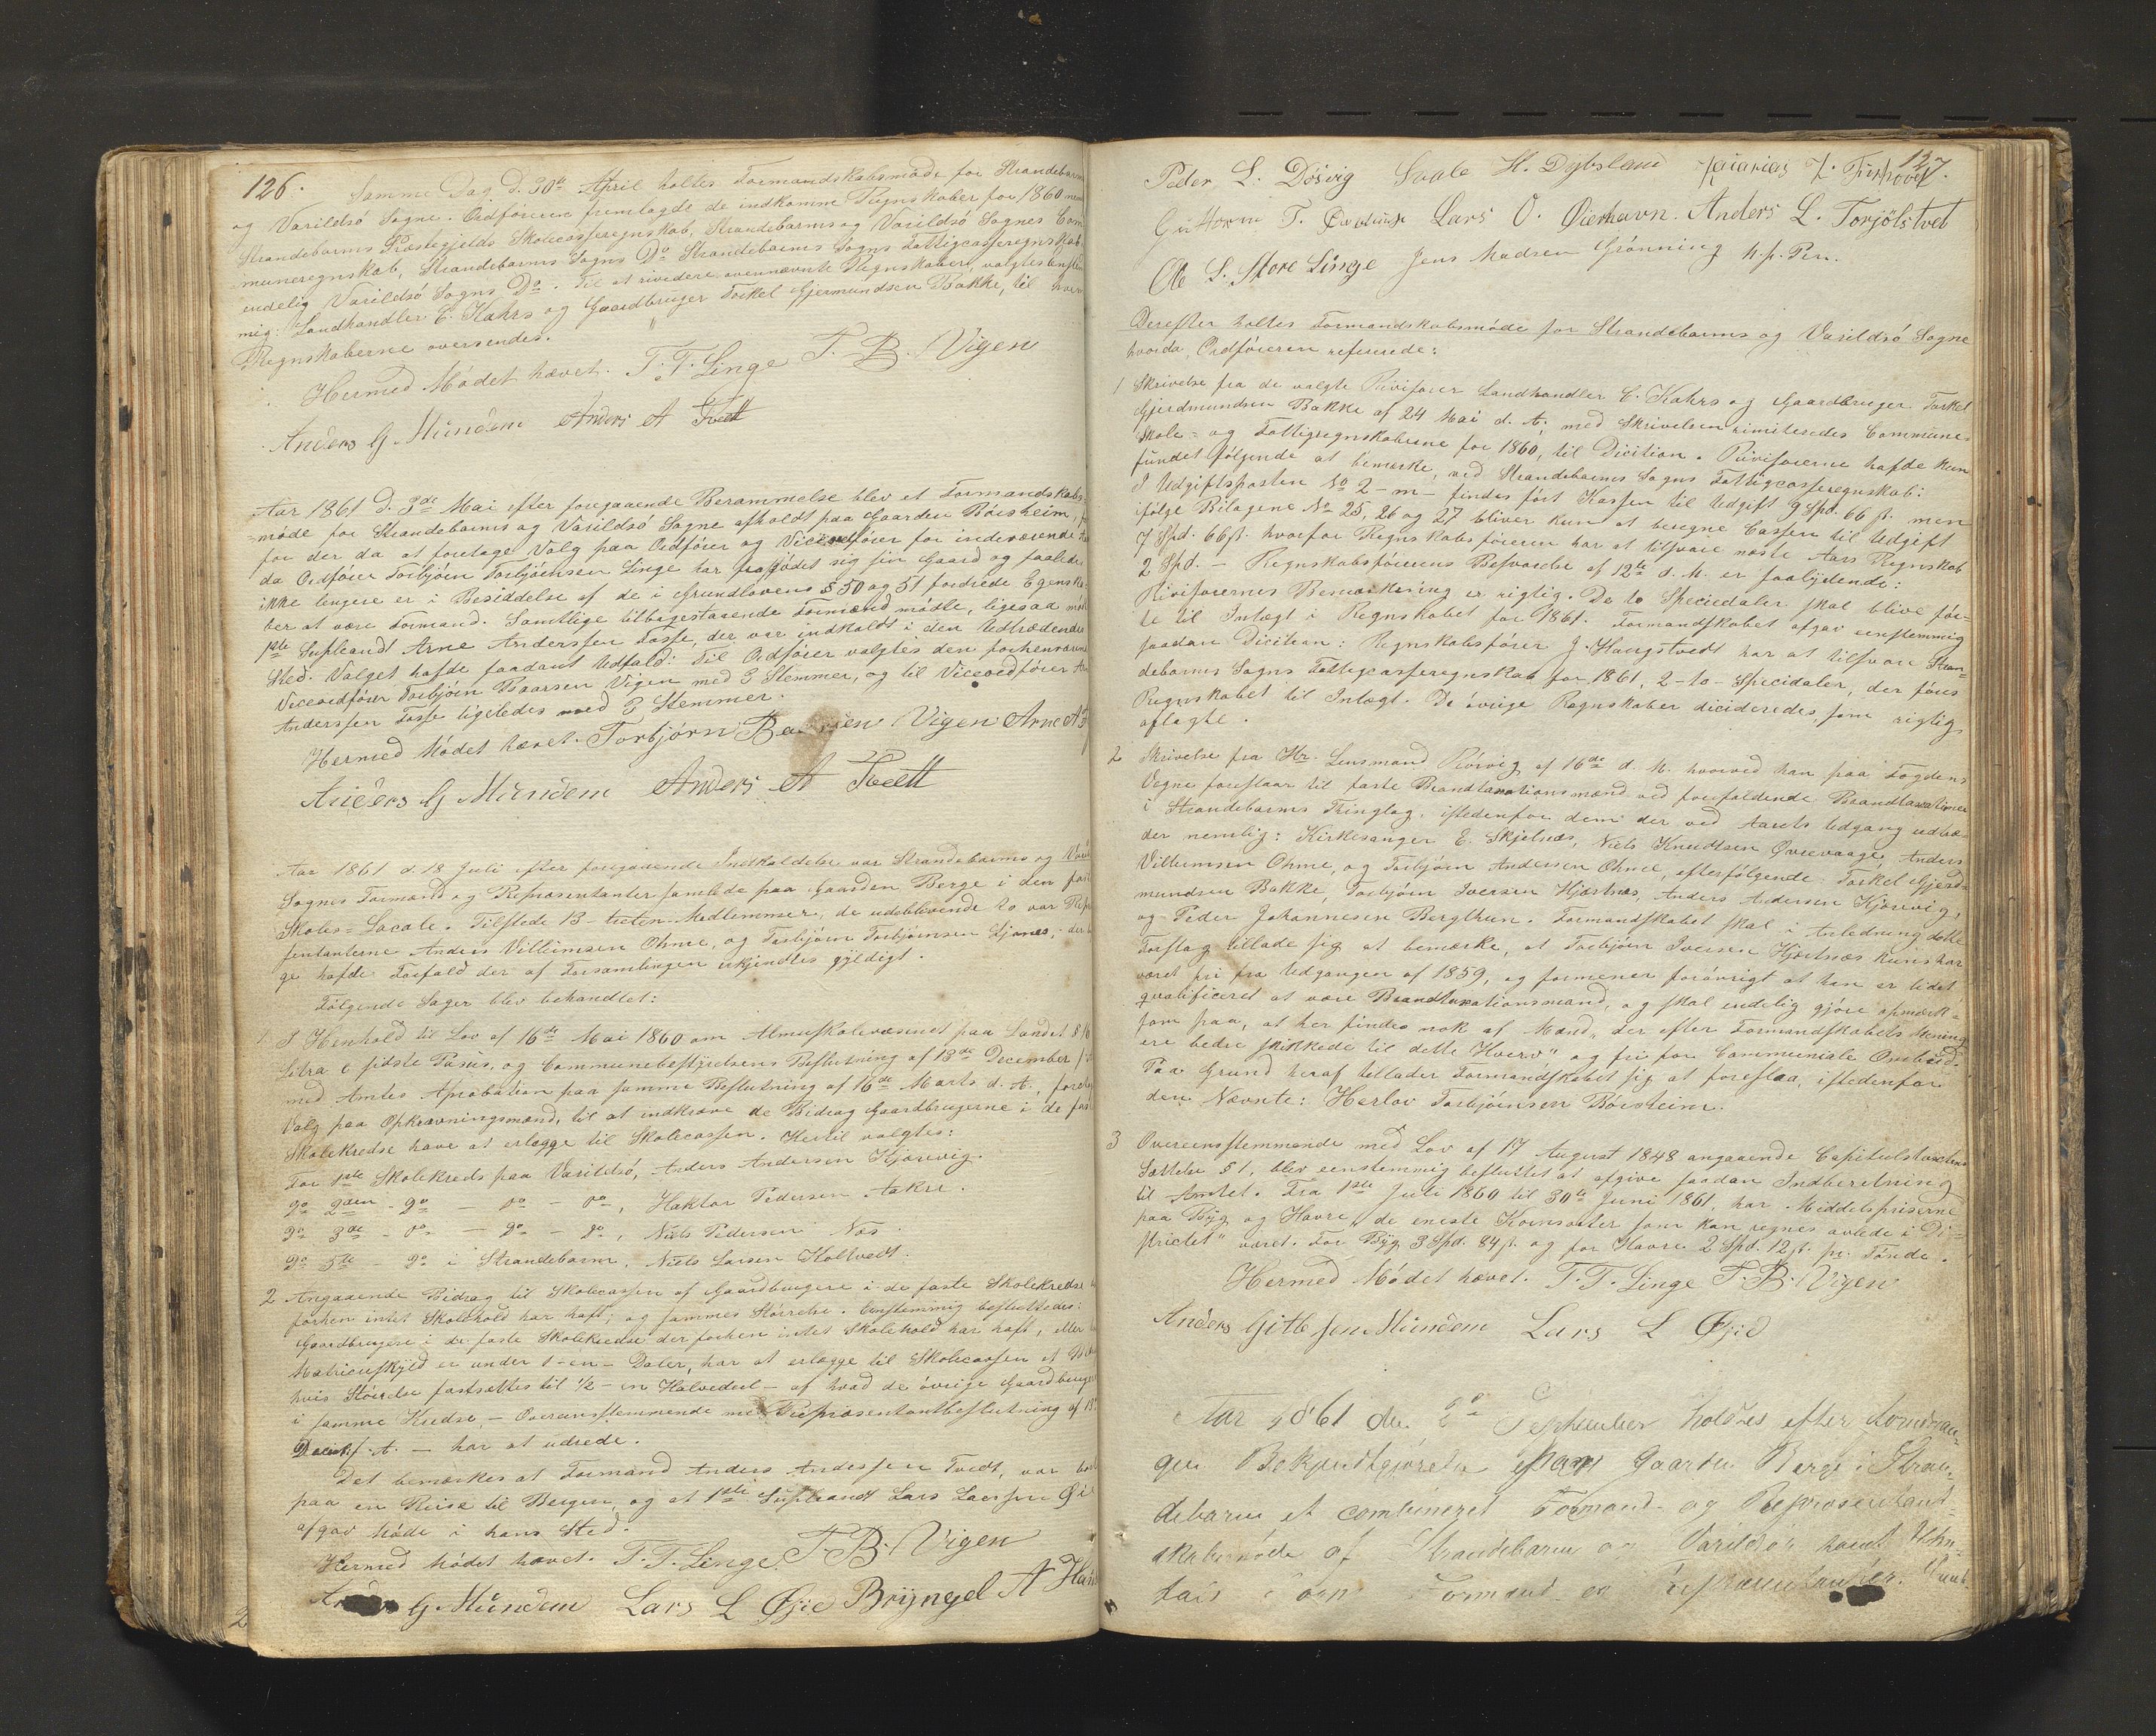 126.
Samme Dag d. 30te April holtes Formandskabsmøde for Strandebarms
og Varildsö Sogne. Ordföreren fremlagde de indkomne Regnskaber for 1860 
Strandebarms Præstegjelds Skolecasseregnskab, Strandebarms og Varildsö Sognes Com
muneregnskab, Strandebarms Sogns Do Strandebarms Sogns Fattigcasseregnskab
endelig Varildsö Sogns Do. Til at rividere ovennævnte Regnskaber, valgtes
mig: Landhandler C. Kahrs og Gaardbruger Torkel Gjermundsen Bakke, til hvem
Regnskaberne oversendes.
Hermed Mödet hævet. T. T. Linge T. B. Vigen
Anders G Mundem Anders A Tvett
Aar 1861 d. 3de Mai efter foregaaende Berammelse blev et Formandskabs-
möde for Strandebarms og Varildsö Sogne afholdt paa Gaarden Börsheim,
for der da at foretage Valg paa Ordförer og Viceordförer for indeværende
da Ordförer Torbjörn Torbjörnsen Linge har fraflödet sig sin Gaard og saaledes
ikke lengere er i Besiddelse af de i Grundlovens § 50 og 51 fordrede Egenska
ber at være Formand. Samtlige tilbagestaaende Formænd mödte, ligesaa mödte
1ste Supleandt Arne Anderssen Fosse, der var indkaldt i den Udtrædendes
Sted. Valget hafde saadant Udfald: Til Ordförer valgtes den forhenværende
Viceordförer Torbjörn Baarsen Vigen med 3 Stemmer, og til Viceordförer Arne
Anderssen Fosse ligeledes med 3 Stemmer.
Hermed Mödet hævet. Torbjörn Baarsen Vigen Arne A F
Anders G Mundem Anders A Tvett
Aar 1861 d. 18 Juli efter foregaaende Indkaldelse var Strandebarms og Varild
Sognes Formænd og Repræsentanter samlede paa Gaarden Berge i den faste
Skoles-Locale. Tilstede 13-tretten-Medlemmer, de udeblivende to var Repræ
sentanterne Anders Villumsen Ohme, og Torbjörn Torbjörnsen Ljones, der be
ge hafde Forfald der af Forsamlingen erkjendtes gyldigt.
Fölgende Sager blev behandlet:
1. I Henhold til Lov af 16de Mai 1860 om Almueskolevæsenet paa Landet §
Litra c sidste Pasus, og Communebestyrelsens Beslutning af 13de December
med Amtes Aprobation paa samme Beslutning af 16de Marts d. A., foretoges
Valg paa Opkrævningsmænd, til at indkræve de Bidrag Gaardbrugerne i de faste
Skolekredse have at erlægge til Skolecassen. Hertil valgtes:
For 1ste Skolekreds paa Varildsö, Anders Andersen Hjærevig.
Do 2den - Do - Do - Do, Haktor Pedersen Aakre.
Do 3de - Do - Do - Do, Niels Pedersen Næs.
Do 5te Do i Strandebarm, Niels Larsen Koltvedt.
2 Angaaende Bidrag til Skolecassen af Gaardbrugere i de faste Skolekredse
forhen intet Skolehold har haft, og sammes Störrelse. Eenstemmig besluttedes:
Gaardbrugere i de faste Skolekredse der forhen intet Skolehold har haft, eller
Matriculskyld er under 1-en-Daler, har at erlægge til Skolecassen et Bidrag
hvis Störrelse fastsættes til ½-en Halvedeel- af hvad de övrige Gaardbrugere
i samme Kredse, - Overeensstemmende med Repræsentantbeslutning af 13de
Decembr f. A. - har at udrede.
Det bemærkes at Formand Anders Anderssen Tvedt, var
paa en Reise til Bergen, og at 1ste Supleandt Lars Larssen Öie
afgav Möde i hans Sted.
Hermed Mödet hævet. T. T. Linge. T. B. Vigen
G Mundem Lars L Øjie Bryngel A
127.
Peder L. Dösvig Saale H. Dybsland
Guttorm T. Lars O. Øierhavn. Anders L. Torjölstvet
Ole L. Store Linge Jens Madsen Grönning h. p. Pen.
Derefter holtes Formandskabsmöde for Strandebarms og Varildsö Sogne
hvorda Ordföreren refererede:
1 Skrivelse fra de valgte Rivisorer Landhandler C. Kahrs og Gaardbruger Torkel
Gjerdmundsen Bakke af 24 Mai d. A., med Skrivelsen rimiteredes Commune-
Skole- og Fattigregnskaberne for 1860, til Dicition. Rivisorerne hafde kun
fundet fölgende at bemærke, ved Strandebarms Sogns Fattigcasseregnskab:
I Udgiftsposten No 2-m- findes fört Kassen til Udgift 9 Spd. 66 ß. men
ifölge Bilagene No 25, 26 og 27 bliver kun at beregne Cassen til Udgift
7 Spd. 66 ß. hvorfor Regnskabsföreren har at tilsvare næste Aars Regnskab
2 Spd. - Regnskabsförerens Besvarelse af 12te d. M. er saalydende:
Rivisorernes Bemærkning er rigtig. De to Speciedaler skal blive för-
te til Indtægt i Regnskabet for 1861. Formandskabet afgav eenstemmig
saadan Dicition: Regnskabsförer J. Haugstvedt har at tilsvare Stran-
debarms Sogns Fattigcasseregnskab for 1861, 2-to-Specidaler, der föres
Regnskabet til Intægt. De övrige Regnskaber dicideredes som rigtig
aflagte.
2 Skrivelse fra Hr. Lensmand Rörvig af 16de d. M. hvorved han paa Fogdens
Vegne foreslaar til faste Brandtaxationsmænd ved forefaldende Brandtaxationer
i Strandebarms Thinglag, istedenfor dem der ved Aarets Udgang udtræ-
der nemlig: Kirkesanger E. Skjelnæs, Niels Knudtsen Øvrevaage, Anders
Villumsen Ohme, og Torbjörn Andersen Ohme, efterfölgende: Torkel Gjerd-
mundsen Bakke, Torbjörn Iversen Hjartnæs, Anders Andersen Hjærevig,
og Peder Johannesen Bergthun. Formandskabet skal i Anledning dette
Forslag tillade sig at bemærke, at Torbjörn Iversen Hjartnæs kuns har
været fri fra Udgangen af 1859, og formener forövrigt at han er lidet
qvalificeret at være Brandtaxationsmand, og skal endelig gjöre opmærk-
som paa, at her findes nok af Mænd "der efter Formandskabets Mening
ere bedre skikkede til dette Hverv" og fri for Communiale Ombud.
Paa Grund heraf tillader Formandskabet sig at foreslaa, istedenfor
den Nævnte: Herlov Torbjörnsen Börsheim.
3 Overeensstemmende med Lov af 17 August 1848 angaaende Capitelstaxtens
Sættelse § 1, blev eenstemmig besluttet at afgive saadan Indberetning
til Amtet. Fra 1ste Juli 1860 til 30te Juni 1861, har Middelspriserne
paa Byg og Havre, "de eneste Kornsorter som kan regnes avlede i Di-
strictet" været. For Byg 3 Spd. 84 ß. og for Havre 2 Spd. 12 ß. pr. Tönde.
Hermed Mödet hævet. T. T. Linge T. B. Vigen
Anders Gitlessen Mundem Lars L Øjie
Aar 1861 den 2den September holdtes efter
gen Bekjendtgjörelse paa Gaarden Berge i Stran-
debarm et combineret Formand- og Repræsentant-
skabsmöde af Strandebarm og Varildsö samt
Sogns Formænd og Repræsentanter.